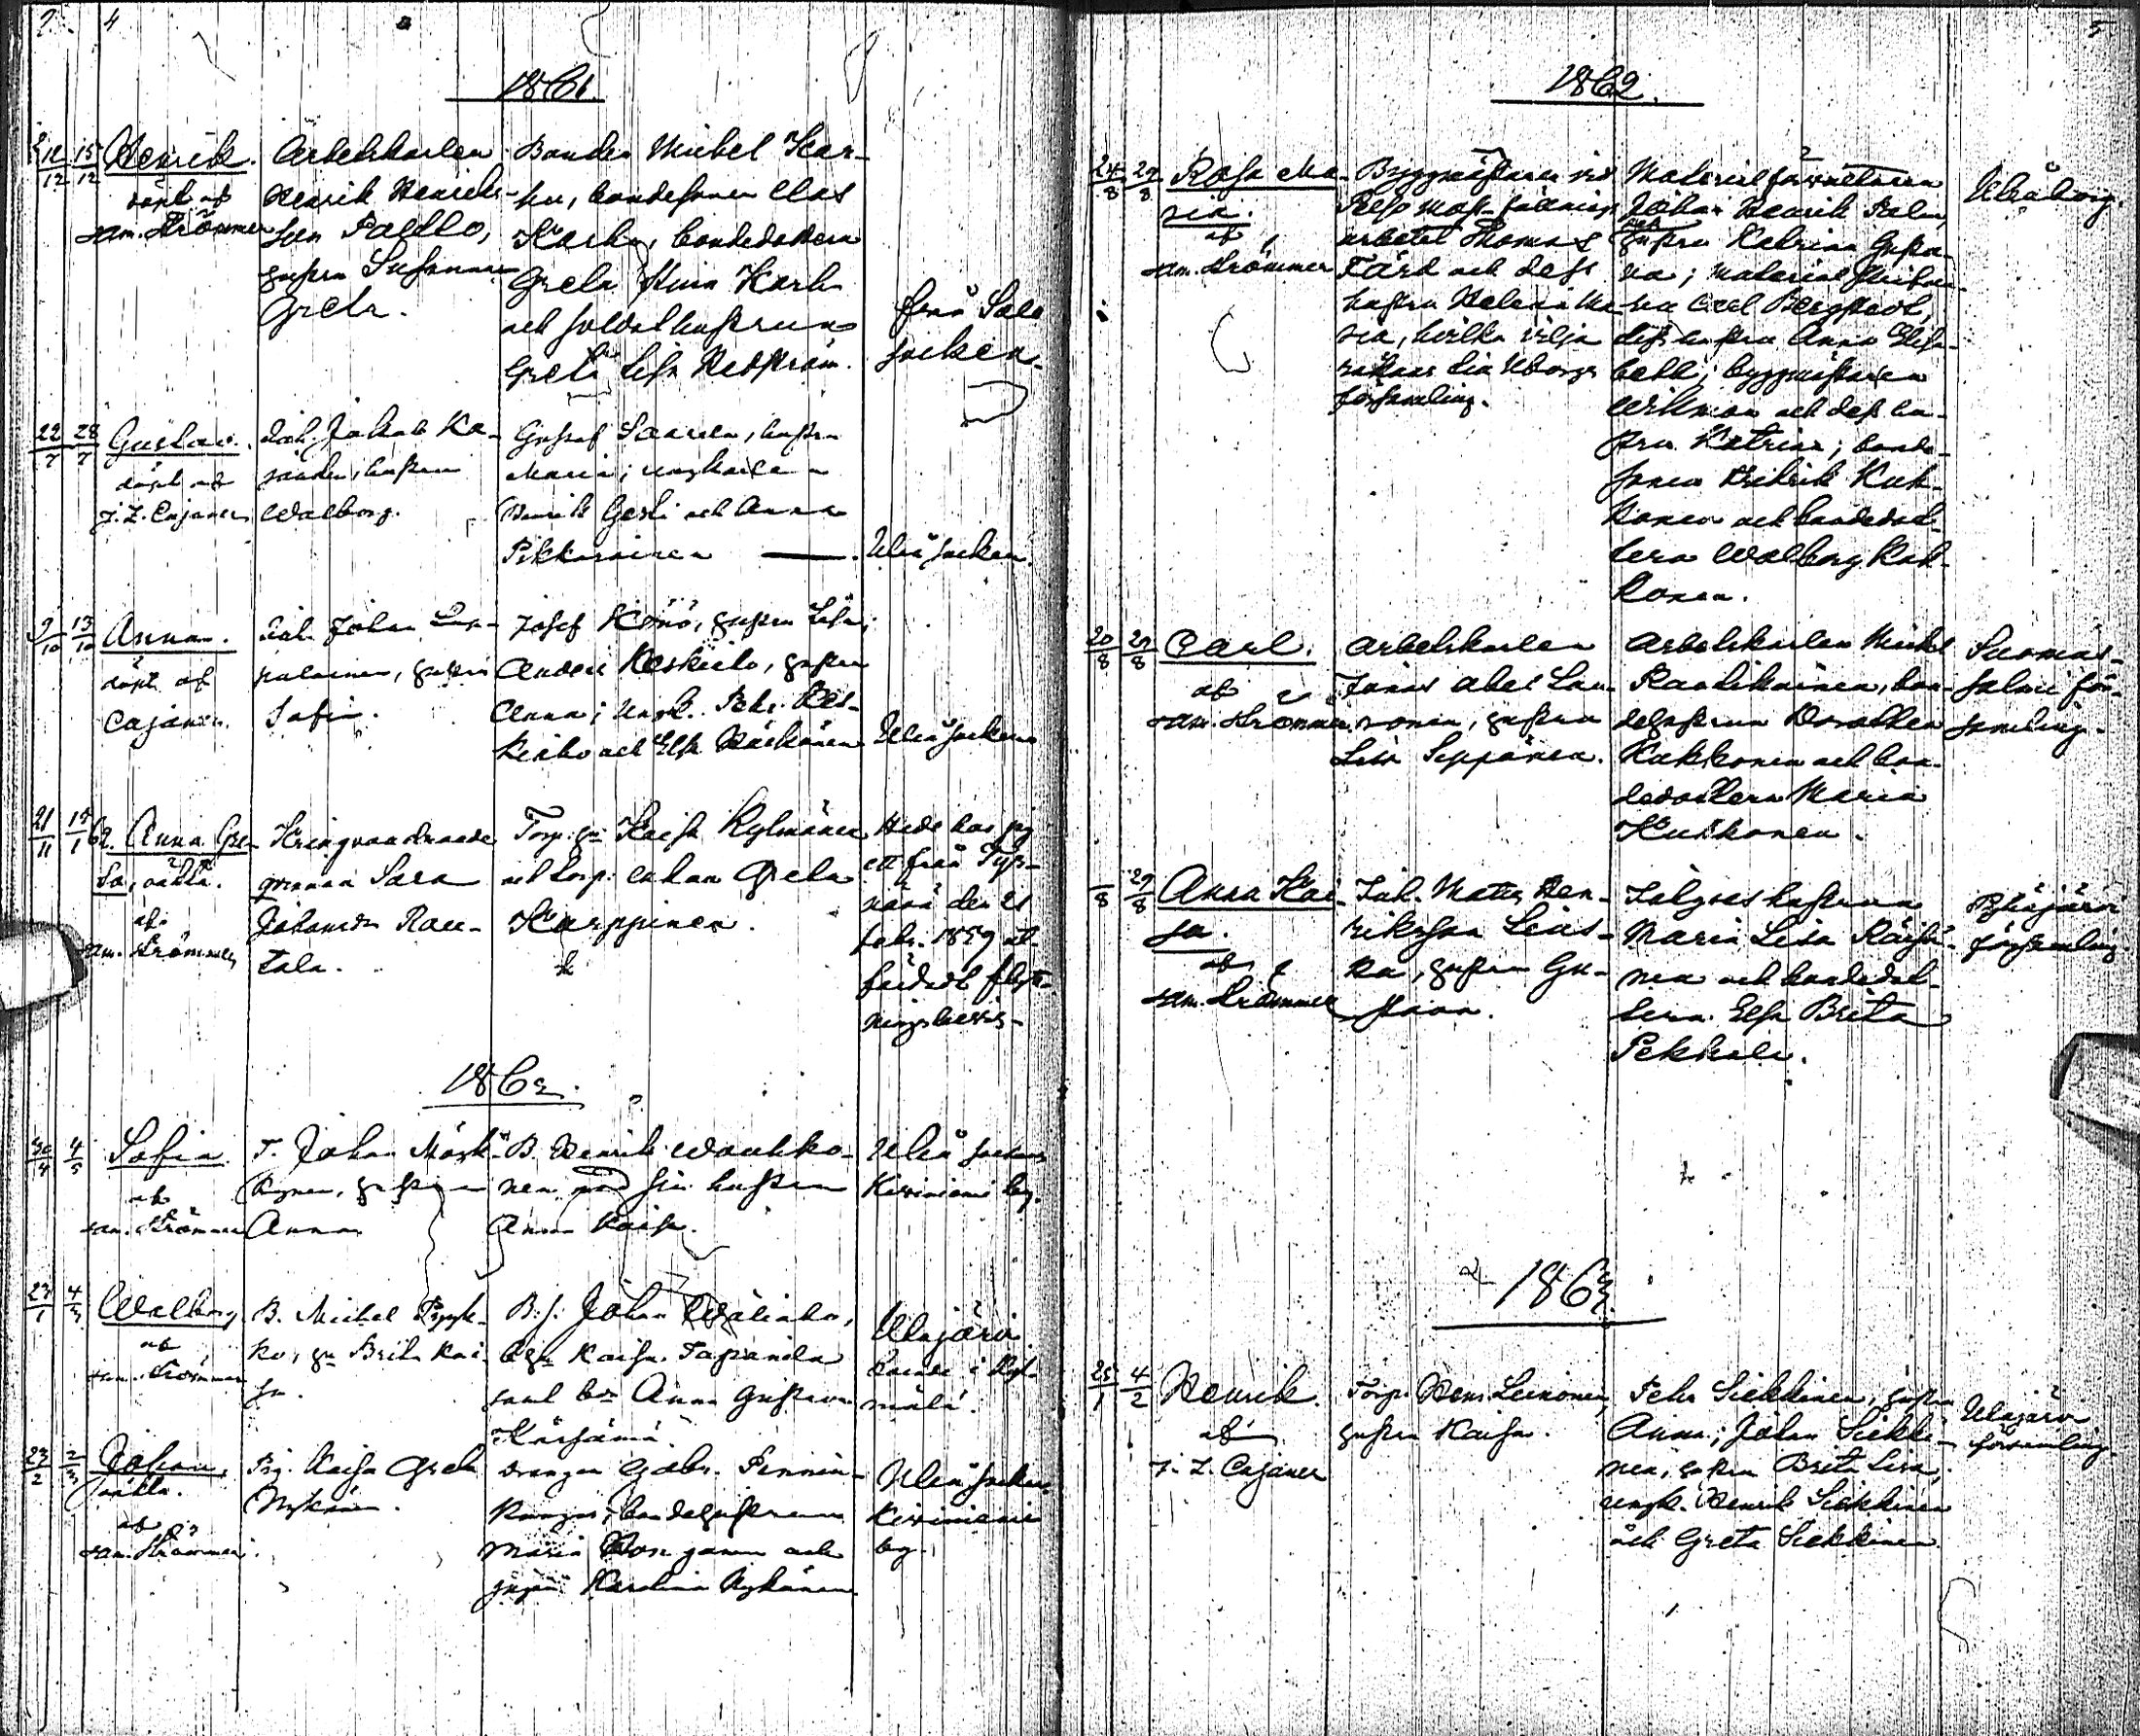 4
1861.
12/12 15/12 Henrik.
döpt af
sam. Krömmer
Arbetskarlen
Henrik Henriks-
son Paldlo,
hustru Susanna
Greta.
Bonden Michel Kar-
hu, bondesonen Clas
Karhu, bondedottern
Greta Stina Karhu
och soldathustrun
Greta Lisa Hedström.
från Salo
socken.
22/7 28/7 Gustav.
döpt af
J. L. Cajaner
Inh. Jakob Ka-
hustru
Walborg.
Gustaf Saarela, hustru
Maria; ungkarlen
Henrik Gesti och Anna
Pikkarainen
Uleå socken.
9/10 13/10 Anna.
döpt af
Cajaner.
Inh. Johan
hustru
Sofia.
Josef Könö, hustru Lisa;
Anders Keskielo, hustru
Anna; ungk. Pehr Kes-
kielo och Elsa
Uleå socken
21/11 15/1 62. Anna Gre-
ta, oäkta.
af
sam. Krömmer
Kringvandrande
qvinnan Sara
Johansdr Rau-
tala.
Torp. hu Kaisa Kylmänen
och torp. enkan Greta
Karppinen.
Hade haft
ett från Tyr-
nävä den 21
febr. 1859 ut-
färdadt flytt-
ningsbevis.
1862.
30/4 4/5 Sofia
af
sam. Krömmer
T. Johan Mosk-
hustrun
Anna
B. Henrik Wouhko-
nen med sin hustru
Anna Kaisa.
Uleå sockens
Kiviniemi by.
23/1 4/3 Walborg
af
sam. Krömmer
B. Michel Pyyk-
kö, hu Brita Kai-
sa.
B.s. Johan Wälitalo,
Kaisa Tapanila
samt Anna Gustava
Kärsämä.
Uleåjärvi
23/2 2/3 Johan,
oäkta.
af
sam. Krömmer.
Pig. Kaisa Greta
Nykänen.
Drängen Gabr. Pennin-
kangas, bondehustrun
Maria och
pigan Karolina Nykänen
Uleå socken
Kiviniemi
by.
5
1862.
24/8 29/8 Rosa Ma-
ria.
af
sam. Krömmer
Byggmästaren vid
Pelso moss-fällnings
arbetet Thomas
Färd och dess
hustru Helena Ma-
ria, hvilka vilja
räknas till Uborgs
församling.
Materialförvaltaren
Johan Henrik Palm,
hustru Katrina Gusta-
va; material skrifva-
ren Carl Bergstedt,
dess hustru Anna Elisa-
beth; byggmästaren
Wikman och dess hu-
stru Katrina; bonde-
sonen Fredrik Kuk-
konen och bondedot-
tern Walborg Kuk-
konen.
Uleåborg.
20/8 29/8 Carl.
af
sam. Krömmer
Arbetskarlen
Jonas Abel Lau-
ronen, hustru
Lisa Seppänen.
Arbetskarlen Michel
Raudikainen, bon-
dehustrun Dorothea
Kukkonen och bon-
dedottern Maria
Kukkonen.
Suomus-
salmi för-
samling.
/8 29/8 Anna Kai-
sa.
af
sam. Krömmer
Inh. Matts Hen-
riksson Leius-
ka, hustru Gu-
stava.
Inhyses hustrun
Maria Lisa Räisä-
nen och bondedot-
tern Elsa Brita
Pekkala.
Pyhäjärvi
församling.
1863.
25/1 4/2 Henrik.
af
J. L. Cajaner
Torp. Hen. Leinonen,
hustru Kaisa.
Pehr Siekkinen, hustru
Anna; Johan Siekki-
nen, hustru Brita Lisa,
ungk. Henrik Siekkinen
och Greta Siekkinen
Uleåjärvi
församling.